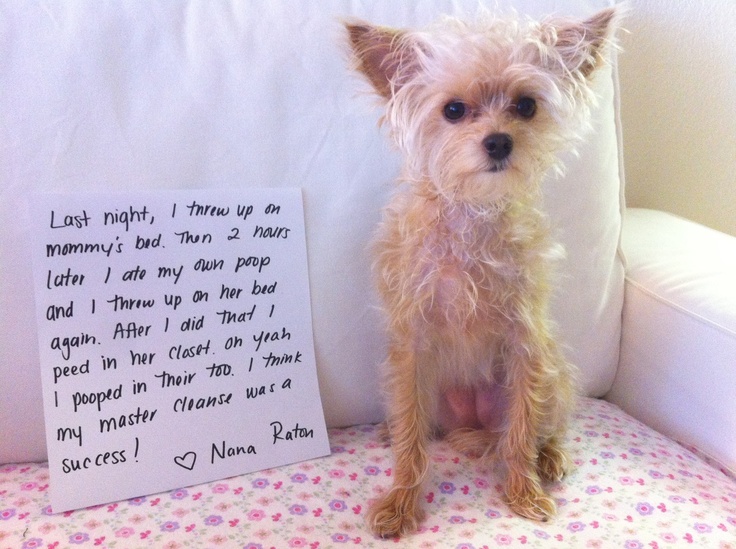 Last night, I threw up on
mommy's bed. Then 2 hours
later I ate my own poop
and I threw up on her bed
again. After I did that I
peed in her closet. oh yeah
I pooped in their too. I think
my master cleanse was a
success! ♡ Nana Raton